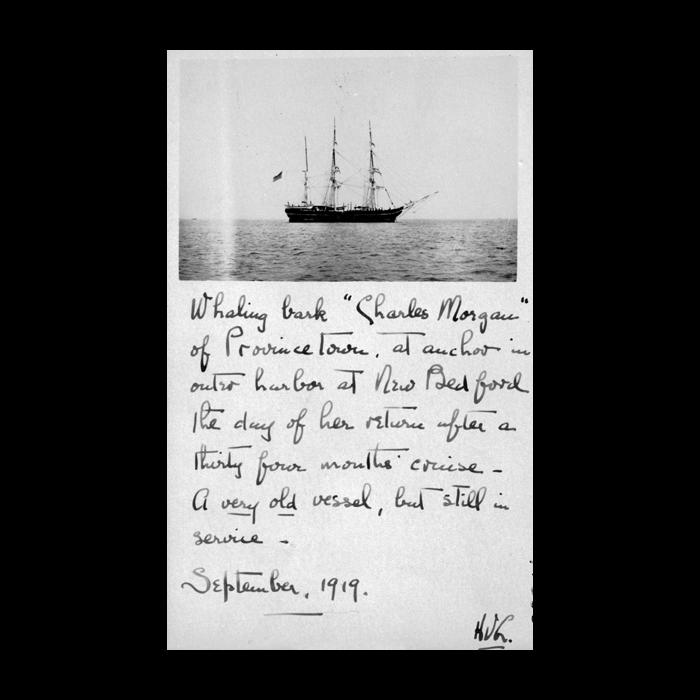 Whaling bark "Charles Morgan"
of Provincetown, at anchor in
outer harbor at New Bedford
the day of her return after a
thirty four months' cruise -
A very old vessel, but still in
service -
September, 1919.